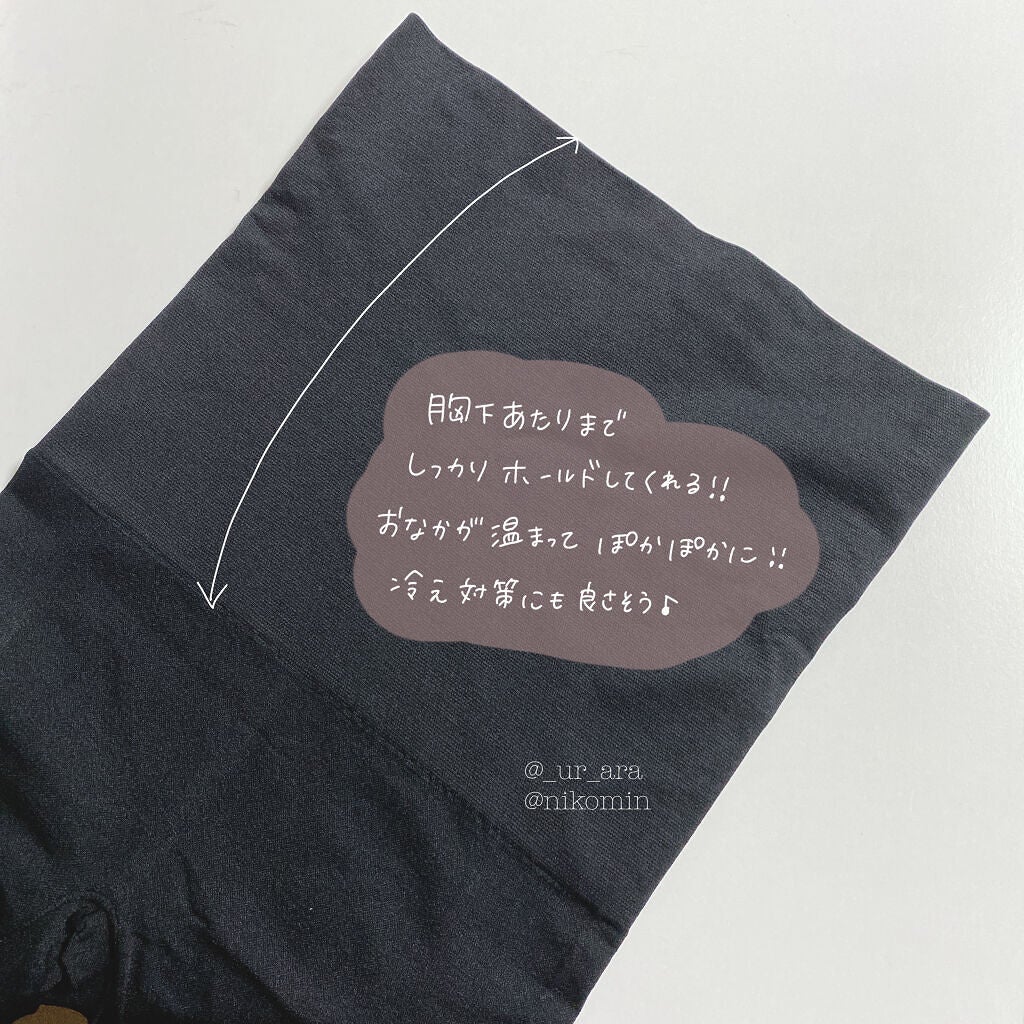 胸下あたりまで
しっかりホールドしてくれる!!
おなかが温まってぽかぽかに!!
冷え対策にも良さそう♪
@_ur_ara
@nikomin